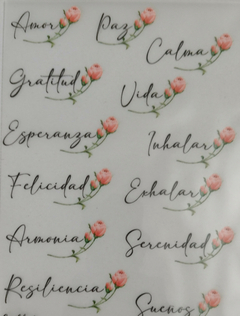 Amor
Paz
Calma
Gratitud
Vida
Esperanza
Inhalar
Felicidad
Exhalar
Armonia
Serenidad
Resiliencia
Suenos